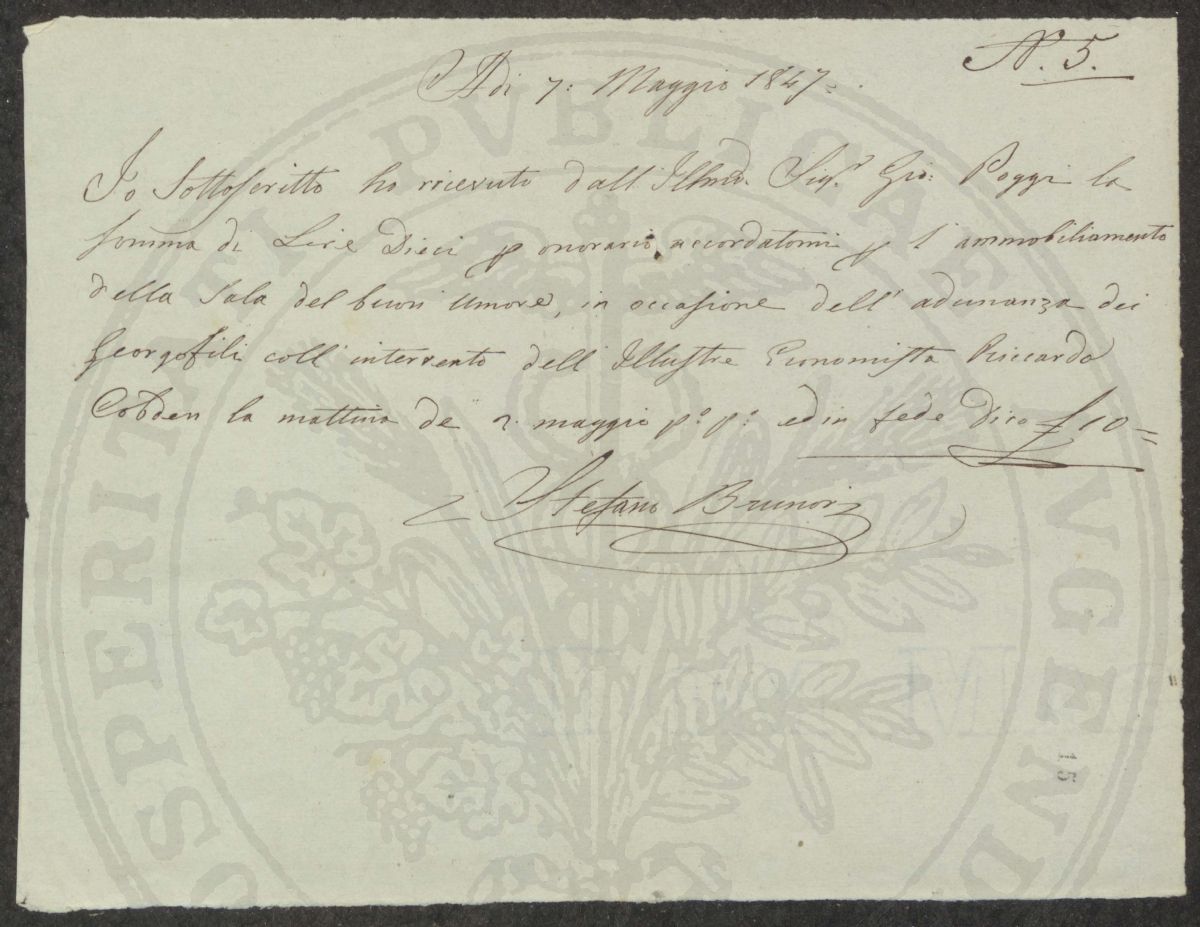 N. 5.
Adì 7: Maggio 1847.
Io Sottoscritto ho ricevuto dall' Illmo. Sigr. Gio: Poggi la
somma di Lire Dieci p onorario accordatomi p l' ammobiliamento
della Sala del buon Umore, in occasione dell' adunanza dei
Georgofili coll' intervento dell' Illustre Economista Riccardo
Cobden la mattina de 2. maggio po. po. ed in fede dico £ 10=
Stefano Brunori
PROSPERITATI PVBLICAE AVGENDAE
15